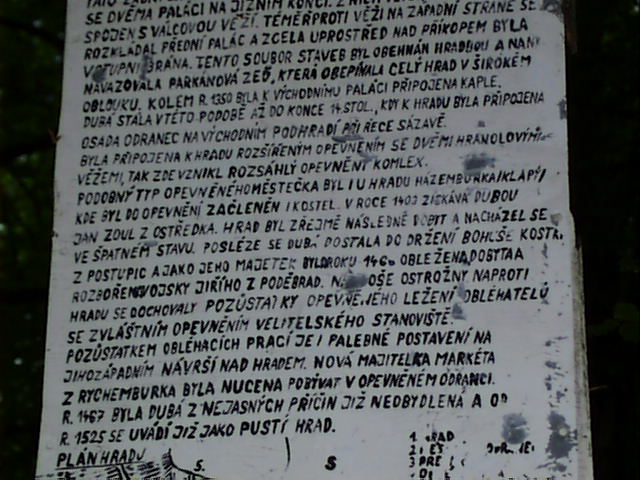 SE DVĚMA PALÁCI NA JIŽNÍM KONCI. Z NICH
SPOJEN S VÁLCOVOU VĚŽÍ. TÉMĚŘ PROTI VĚŽI NA ZÁPADNÍ STRANĚ SE
ROZKLÁDAL PŘEDNÍ PALÁC A ZCELA UPROSTŘED NAD PŘÍKOPEM BYLA
VSTUPNÍ BRÁNA. TENTO SOUBOR STAVEB BYL OBEHNÁN HRADBOU A NA NI
NAVAZOVALA PARKÁNOVÁ ZEĎ, KTERÁ OBEPÍNALA CELÝ HRAD V ŠIROKÉM
OBLOUKU. KOLEM R. 1350 BYLA K VÝCHODNÍMU PALÁCI PŘIPOJENA KAPLE.
DUBÁ STÁLA V TÉTO PODOBĚ AŽ DO KONCE 14. STOL., KDY K HRADU BYLA PŘIPOJENA
OSADA ODRANEC NA VÝCHODNÍM PODHRADÍ PŘI ŘECE SÁZAVĚ.
BYLA PŘIPOJENA K HRADU ROZŠÍŘENÝM OPEVNĚNÍM SE DVĚMI HRANOLOVÝMI
VĚŽEMI, TAK ZDE VZNIKL ROZSÁHLÝ OPEVNĚNÝ KOMLEX.
PODOBNÝ TYP OPEVNĚNÉHO MĚSTEČKA BYL I U HRADU HÁZEMBURKA/KLAPÝ/
KDE BYL DO OPEVNĚNÍ ZAČLENĚN I KOSTEL. V ROCE 1403 ZÍSKÁVÁ DUBOU
JAN ZOUL Z OSTŘEDKA. HRAD BYL ZŘEJMĚ NÁSLEDNĚ DOBYT A NACHÁZEL SE
VE ŠPATNÉM STAVU. POSLÉZE SE DUBÁ DOSTALA DO DRŽENÍ BOHUŠE KOSTK
Z POSTUPIC A JAKO JEHO MAJETEK BYL ROKU 146 OBLEŽENA, DOBYTA A
ROZBOŘENA VOJSKY JIŘÍHO Z PODĚBRAD. OSTROŽNY NAPROTI
HRADU SE DOCHOVALY POZŮSTATKY OPEVNĚNÉHO LEŽENÍ OBLÉHATELŮ
SE ZVLÁŠTNÍM OPEVNĚNÍM VELITELSKÉHO STANOVIŠTĚ.
POZŮSTATKEM OBLÉHACÍCH PRACÍ JE I PALEBNÉ POSTAVENÍ NA
JIHOZÁPADNÍM NÁVRŠÍ NAD HRADEM. NOVÁ MAJITELKA MARKÉTA
Z RYCHEMBURKA BYLA NUCENA POBÝVAT V OPEVNĚNÉM ODRANCI.
R. 1467 BYLA DUBÁ Z NEJASNÝCH PŘÍČIN JIŽ NEOBYDLENÁ A OD
R. 1525 SE UVÁDÍ JIŽ JAKO PUSTÝ HRAD.
PLÁN HRADU
S. S
1. HRAD